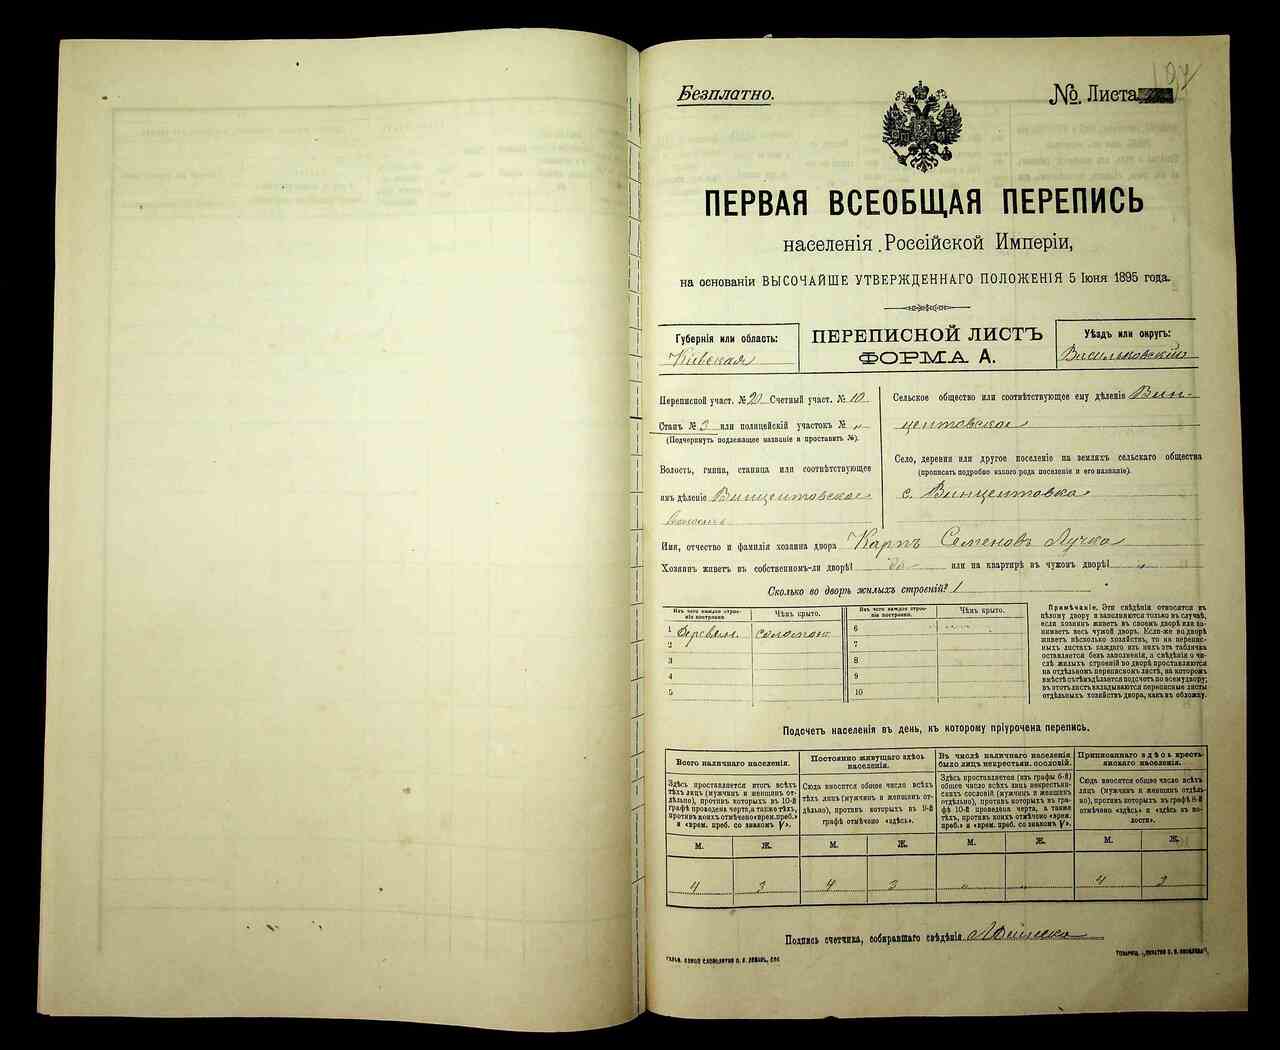 197
Безплатно.
№ Листа
ПЕРВАЯ ВСЕОБЩАЯ ПЕРЕПИСЬ
населенія Россійской Имперіи,
на основаніи ВЫСОЧАЙШЕ УТВЕРЖДЕННАГО ПОЛОЖЕНІЯ 5 Іюня 1895 года.
Губернія или область:
Кіевская
ПЕРЕПИСНОЙ ЛИСТЪ
ФОРМА А.
Уѣздъ или округъ:
Васильковскій
Переписной участ. № 20 Счетный участ. № 10
Станъ № 3 или полицейскій участокъ № „
(Подчеркнуть подлежащее названіе и проставить №).
Волость, гмина, станица или соотвѣтствующее
имъ дѣленіе Винцентовское
волость
Сельское общество или соотвѣтствующее ему дѣленіе Вин-
центовское
Село, деревня или другое поселеніе на земляхъ сельскаго общества
(прописать подробно какого рода поселеніе и его названіе).
с. Винцентовка
Имя, отчество и фамилія хозяина двора Карпъ Семеновъ Лучка
Хозяинъ живетъ въ собственномъ-ли дворѣ? да или на квартирѣ въ чужомъ дворѣ? „
Сколько во дворѣ жилыхъ строеній? 1
Изъ чего каждое строе-
ніе построено.
Чѣмъ крыто.
Изъ чего каждое строе-
ніе построено.
Чѣмъ крыто.
1 Деревян. соломою
2
3
4
5
6
7
8
9
10
Примѣчаніе. Эти свѣдѣнія относятся къ
цѣлому двору и заполняются только въ случаѣ,
если хозяинъ живетъ въ своемъ дворѣ или за-
нимаетъ весь чужой дворъ. Если-же во дворѣ
живетъ нѣсколько хозяйствъ, то на перепис-
ныхъ листахъ каждаго изъ нихъ эта табличка
оставляется безъ заполненія, а свѣдѣнія о чи-
слѣ жилыхъ строеній во дворѣ проставляются
на отдѣльномъ переписномъ листѣ, на которомъ
вмѣстѣ съ тѣмъ дѣлается подсчетъ по всему двору;
въ этотъ листъ вкладываются переписные листы
отдѣльныхъ хозяйствъ двора, какъ въ обложку.
Подсчетъ населенія въ день, къ которому пріурочена перепись.
Всего наличнаго населенія.
Здѣсь проставляется итогъ всѣхъ
тѣхъ лицъ (мужчинъ и женщинъ от-
дѣльно), противъ которыхъ въ 10-й
графѣ проведена черта, а также тѣхъ,
противъ коихъ отмѣчено «врем. преб.»
и «врем. преб. со знакомъ V».
Постоянно живущаго здѣсь
населенія.
Сюда вносится общее число всѣхъ
тѣхъ лицъ (мужчинъ и женщинъ от-
дѣльно), противъ которыхъ въ 9-й
графѣ отмѣчено «здѣсь».
Въ числѣ наличнаго населенія
было лицъ некрестьян. сословій.
Здѣсь проставляется (изъ графы 6-й)
общее число всѣхъ лицъ некрестьян-
скихъ сословій (мужчинъ и женщинъ
отдѣльно), противъ которыхъ въ гра-
фѣ 10-й проведена черта, а также
тѣхъ, противъ коихъ отмѣчено «врем.
преб.» и «врем. преб. со знакомъ V».
Приписаннаго здѣсь кресть-
янскаго населенія.
Сюда вносится общее число всѣхъ
лицъ (мужчинъ и женщинъ отдѣль-
но), противъ которыхъ въ графѣ 8-й
отмѣчено «здѣсь» и «здѣсь въ во-
лости».
М. Ж. М. Ж. М. Ж. М. Ж.
4 3 4 3 „ „ 4 3
Подпись счетчика, собиравшаго свѣдѣнія